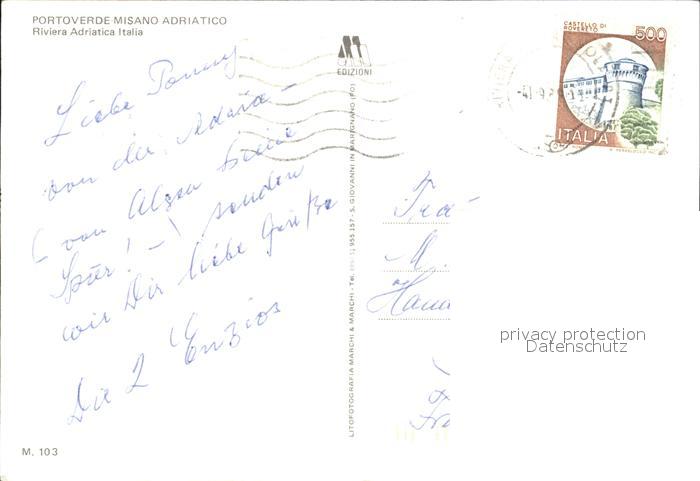 PORTOVERDE-MISANO ADRIATICO
Riviera Adriatica Italia
EDIZIONI
CASTELLO DI
ROVERETO
500
ITALIA
Liebe
von der Adria -
( von Algen keine
Spur! -) senden
wir Dir liebe Grüße
Die 2 Enzios
LITOFOTOGRAFIA MARCHI & MARCHI - Tel. 955 157 - S. GIOVANNI IN MARIGNANO (FO)
M.
privacy protection
Datenschutz
M. 103